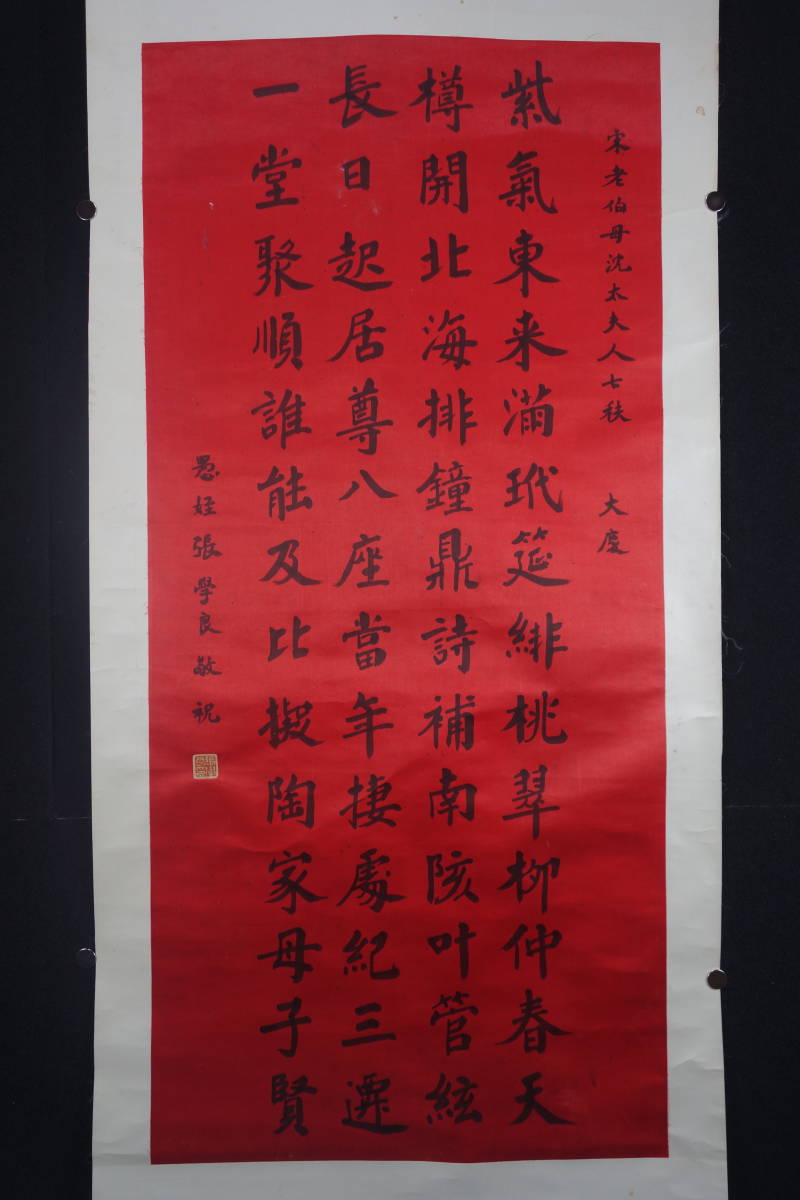 宋老伯母沈太夫人七秩　大慶
紫氣東来滿玳筵緋桃翠柳仲春天
樽開北海排鐘鼎詩補南陔叶管絃
長日起居尊八座當年捿處紀三遷
一堂聚順誰能及比擬陶家母子賢
愚姪張學良敬祝